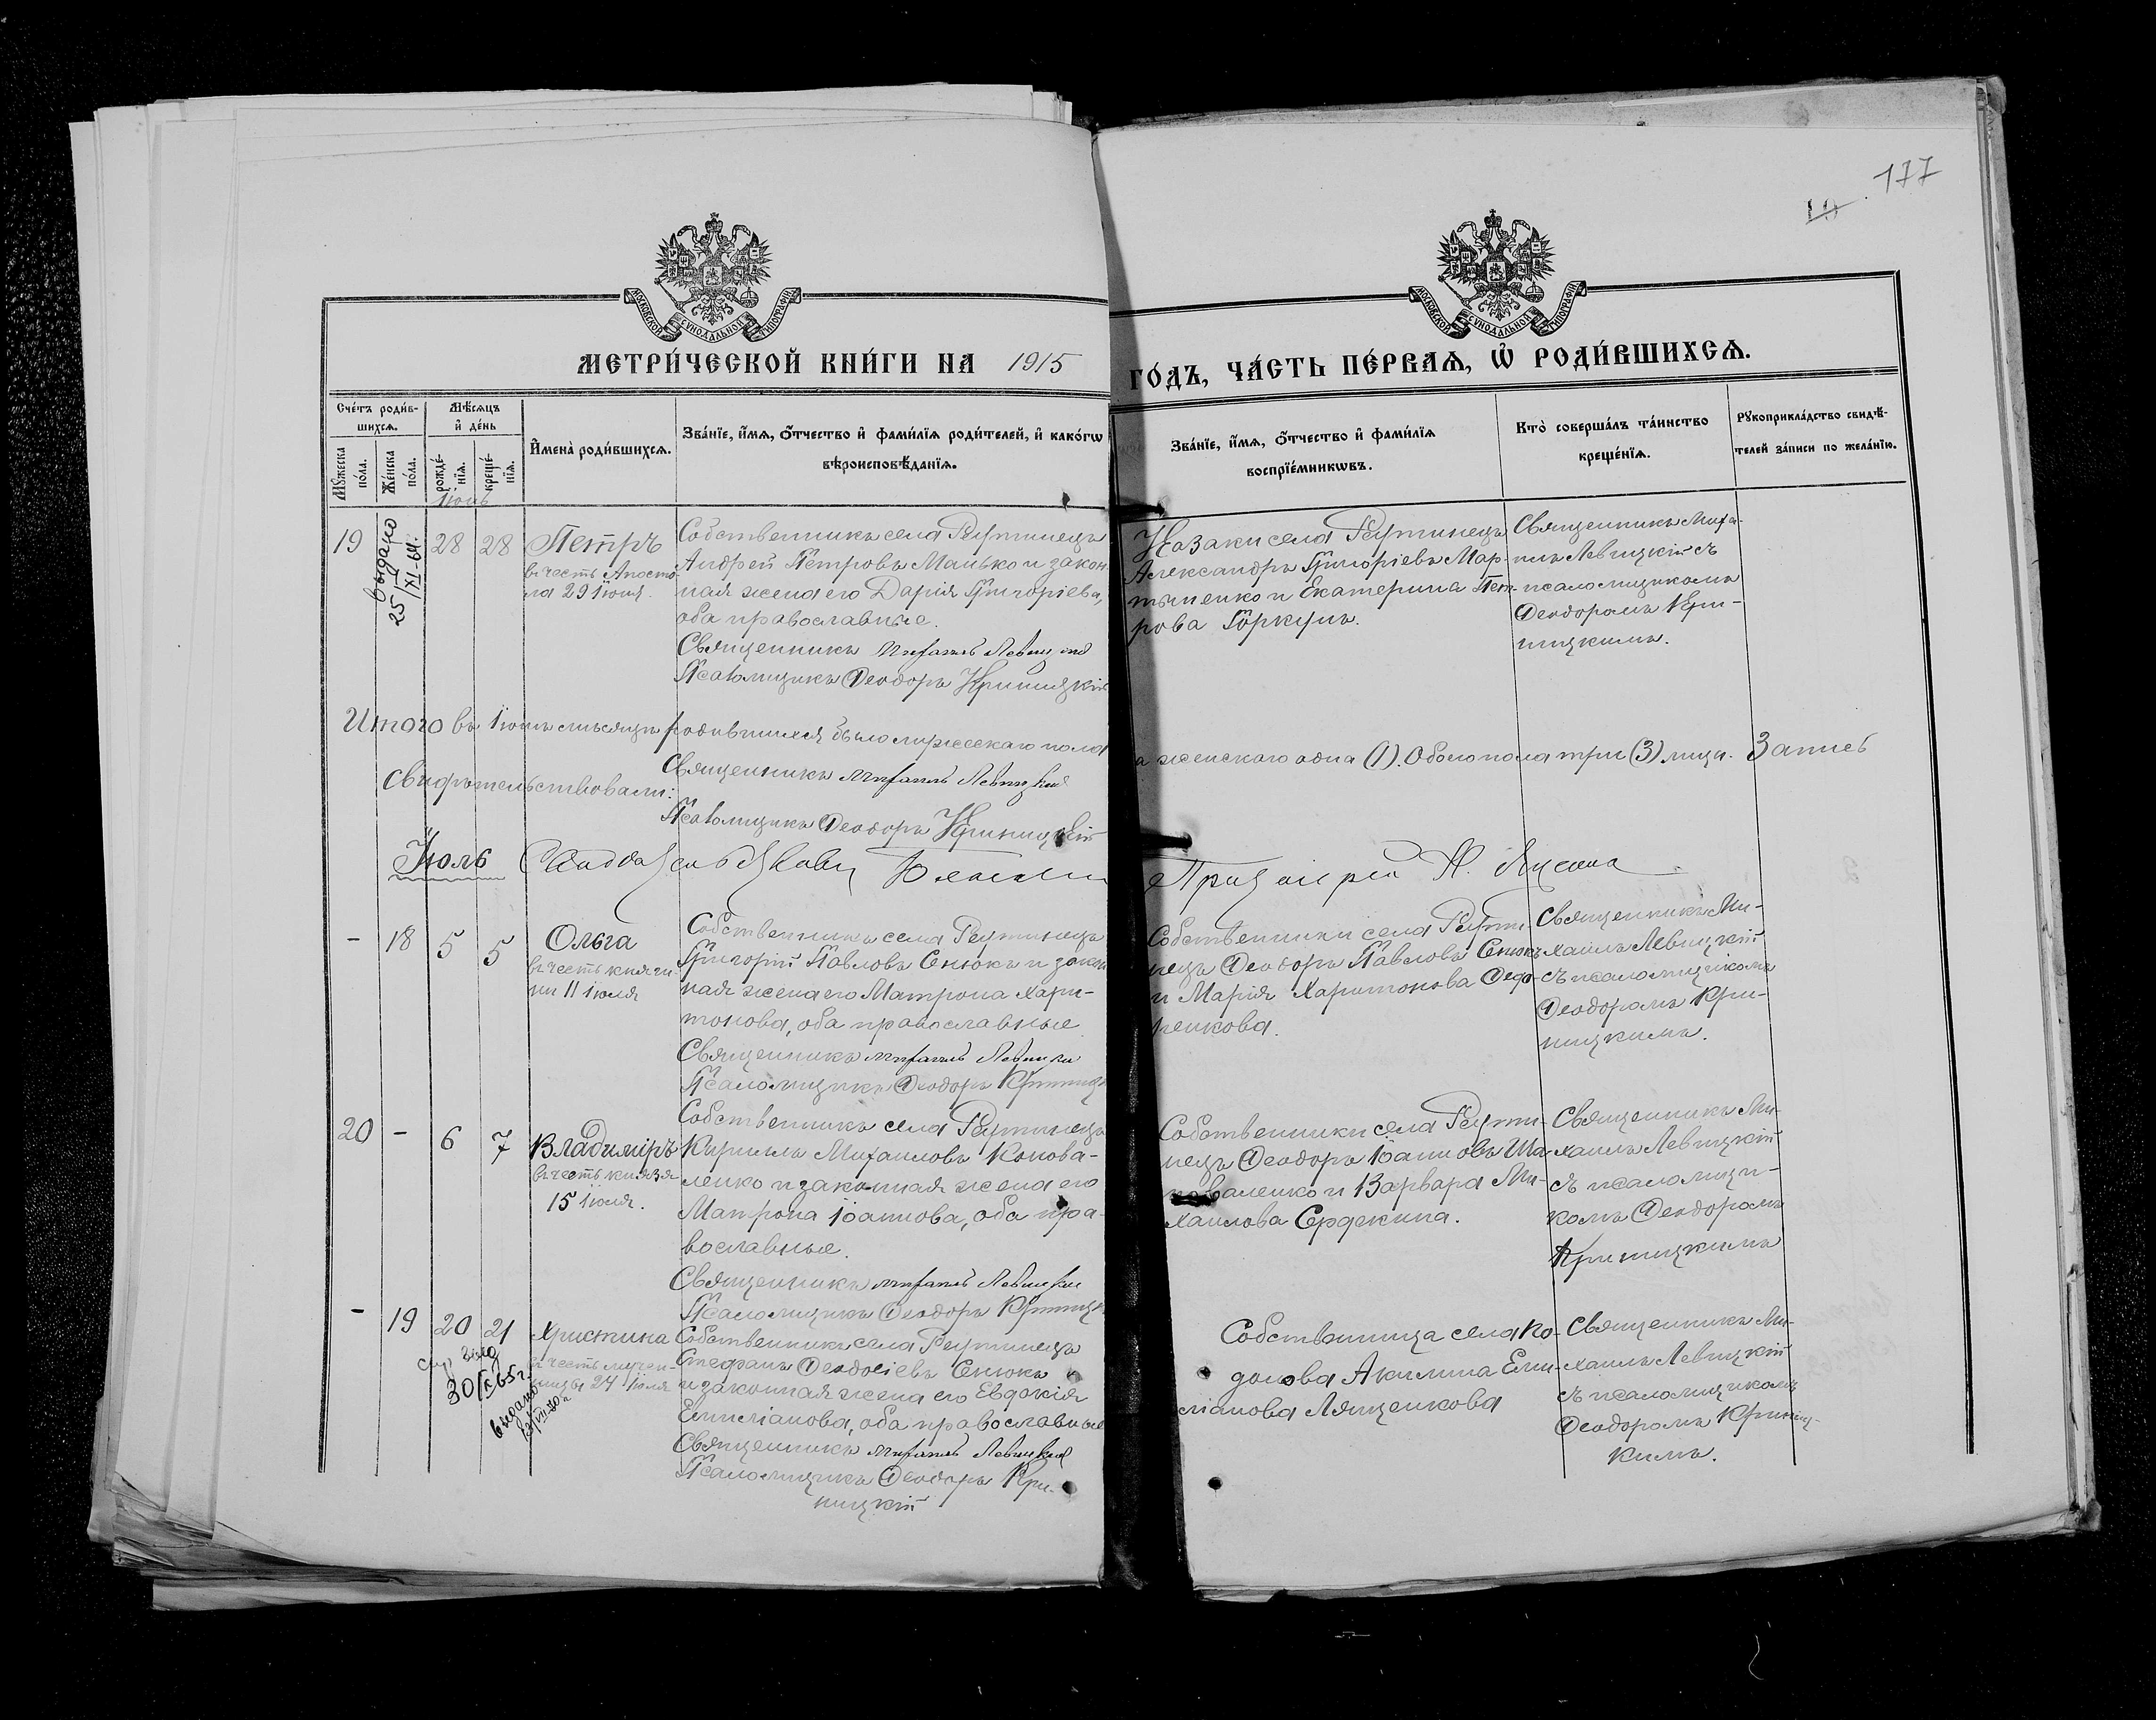 177
10
МОСКОВСКОЙ СѴНОДАЛЬНОЙ ТИПОГРАФІИ
МОСКОВСКОЙ СѴНОДАЛЬНОЙ ТИПОГРАФІИ
МЕТРИ́ЧЕСКОЙ КНИ́ГИ НА 1915
ГО́ДЪ, ЧА́СТЬ ПЕ́РВАѦ, Ѡ҆ РОДИ́ВШИХСѦ.
Сче́тъ роди́в-
шихсѧ.
Мꙋ́жеска
по́ла.
Же́нска
по́ла.
Мѣ́сѧцъ
и҆ де́нь
рожде́-
нїѧ.
креще́-
нїѧ.
И҆мена̀ роди́вшихсѧ.
Зва́нїе, и҆́мѧ, ѻ҆́тчество и҆ фами́лїѧ роди́телей, и҆ како́гѡ
вѣроисповѣ́данїѧ.
Зва́нїе, и҆́мѧ, ѻ҆́тчество и҆ фами́лїѧ
воспрїе́мникѡвъ.
Кто̀ соверша́лъ та́инство
креще́нїѧ.
Рꙋкоприкла́дство свидѣ́-
телей за́писи по жела́нїю.
Іюнь
19
выдано
28 28
Петръ
въ честь Апосто-
ла 29 іюня.
Собственникъ села Реутинецъ
Андрей Петровъ Манько и закон
ная жена его Дарія Григоріева,
оба православные.
Священникъ Михаилъ Левицкій
Псаломщикъ Ѳеодоръ Криницкій
Козаки села Реутинецъ
Александръ Григоріевъ Мар-
тыненко и Екатерина Пет-
рова Горкунъ.
Священникъ Миха-
илъ Левицкій съ
псаломщикомъ
Ѳеодоромъ Кри-
ницкимъ.
Итого въ Іюнѣ мѣсяцѣ родившихся было мужескаго пола
а женскаго одна (1). Обоего пола три (3) лица. Запись
свидѣтельствовали:
Священникъ Михаилъ Левицкій
Псаломщикъ Ѳеодоръ Криницкій
Іюль
- 18 5 5
Ольга
въ честь княги-
ни 11 іюля
Собственникъ села Реутинецъ
Григорій Павловъ Сенюкъ и закон
ная жена его Матрона Хари-
тонова, оба православные
Священникъ Михаилъ Левицкій
Псаломщикъ Ѳеодоръ Криницк
Собственники села Реути-
нецъ Ѳеодоръ Павловъ Сенюкъ
и Марія Харитонова Ѳедо-
ренкова.
Священникъ Ми-
хаилъ Левицкій
съ псаломщикомъ
Ѳеодоромъ Кри-
ницкимъ.
20 - 6 7
Владиміръ
въ честь князя
15 іюля.
Собственникъ села Реутинецъ
Кириллъ Михаиловъ Конова-
ленко и законная жена его
Матрона Іоаннова, оба пра-
вославные.
Священникъ Михаилъ Левицкій
Псаломщикъ Ѳеодоръ Криницк
Собственники села Реути-
нецъ Ѳеодоръ Іоанновъ Ша
поваленко и Варвара Ми-
хаилова Сердекина.
Священникъ Ми-
хаилъ Левицкій
съ псаломщи-
комъ Ѳеодоромъ
Криницкимъ
- 19 20 21
Христина
въ честь мучен-
ницы 24 іюля
30/X 65 г.
выдано
Собственникъ села Реутинецъ
Стефанъ Ѳеодосіевъ Сенюкъ
и законная жена его Евдокія
Емиліанова, оба православные
Священникъ Михаилъ Левицкій
Псаломщикъ Ѳеодоръ Кри-
ницкій
Собственница села По-
долова Акилина Еми-
ліанова Лященкова
Священникъ Ми-
хаилъ Левицкій
съ псаломщикомъ
Ѳеодоромъ Криниц-
кимъ.